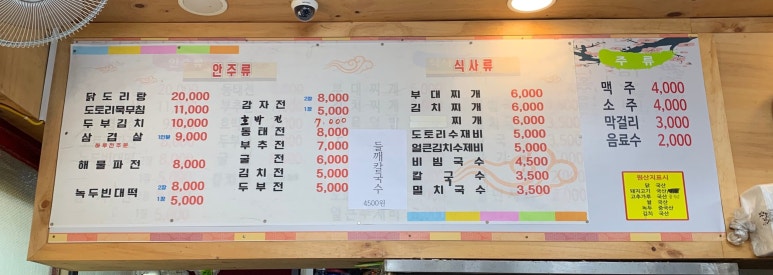 안주류
닭도리탕 20,000
도토리묵무침 11,000
두부김치 10,000
삼겹살 1인분 9,000
해물파전 8,000
녹두빈대떡 2장 8,000
1장 5,000
감자전 2장 8,000
1장 5,000
호박전 7,000
동태전 8,000
부추전 7,000
굴전 6,000
김치전 5,000
두부전 5,000
들깨칼국수
4500원
식사류
부대찌개 6,000
김치찌개 6,000
찌개 6,000
도토리수재비 5,000
얼큰김치수제비 5,000
비빔국수 4,500
칼국수 3,500
멸치국수 3,500
주류
맥주 4,000
소주 4,000
막걸리 3,000
음료수 2,000
원산지표시
닭 국산
돼지고기 국산
고추가루 국산
쌀 국산
녹두 중국산
김치 국산